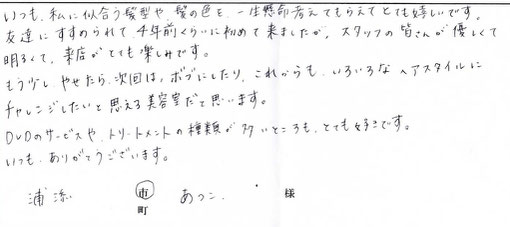 いつも、私に似合う髪型や髪の色を、一生懸命考えてもらえてとても嬉しいです。
友達にすすめられて、4年前くらいに初めて来ましたが、スタッフの皆さんが優しくて
明るくて、来店がとても楽しみです。
もう少しやせたら、次回は、ボブにしたり、これからも、いろいろなヘアスタイルに
チャレンジしたいと思える美容室だと思います。
DVDのサービスや、トリートメントの種類が多いところも、とても好きです。
いつも、ありがとうございます。
浦添 市 あつこ 様
町